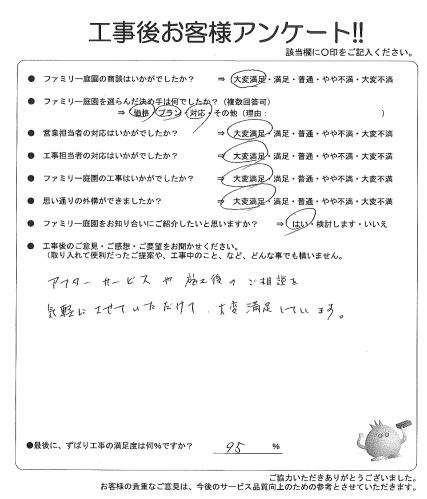 工事後お客様アンケート!!
該当欄に○印をご記入ください。
● ファミリー庭園の商談はいかがでしたか? ⇒ 大変満足・満足・普通・やや不満・大変不満
● ファミリー庭園を選らんだ決め手は何でしたか?(複数回答可)
⇒ 価格・プラン・対応・その他(理由: )
● 営業担当者の対応はいかがでしたか? ⇒ 大変満足・満足・普通・やや不満・大変不満
● 工事担当者の対応はいかがでしたか? ⇒ 大変満足・満足・普通・やや不満・大変不満
● ファミリー庭園の工事はいかがでしたか? ⇒ 大変満足・満足・普通・やや不満・大変不満
● 思い通りの外構ができましたか? ⇒ 大変満足・満足・普通・やや不満・大変不満
● ファミリー庭園をお知り合いにご紹介したいと思いますか? ⇒ はい・検討します・いいえ
● 工事後のご意見・ご感想・ご要望をお聞かせください。
(取り入れて便利だったご提案や、工事中のこと、など、どんな事でも構いません。
アフターサービスや施工後のご相談を
気軽にさせていただけて、大変満足しています。
●最後に、ずばり工事の満足度は何%ですか? 95 %
ご協力いただきありがとうございました。
お客様の貴重なご意見は、今後のサービス品質向上のための参考とさせていただきます。